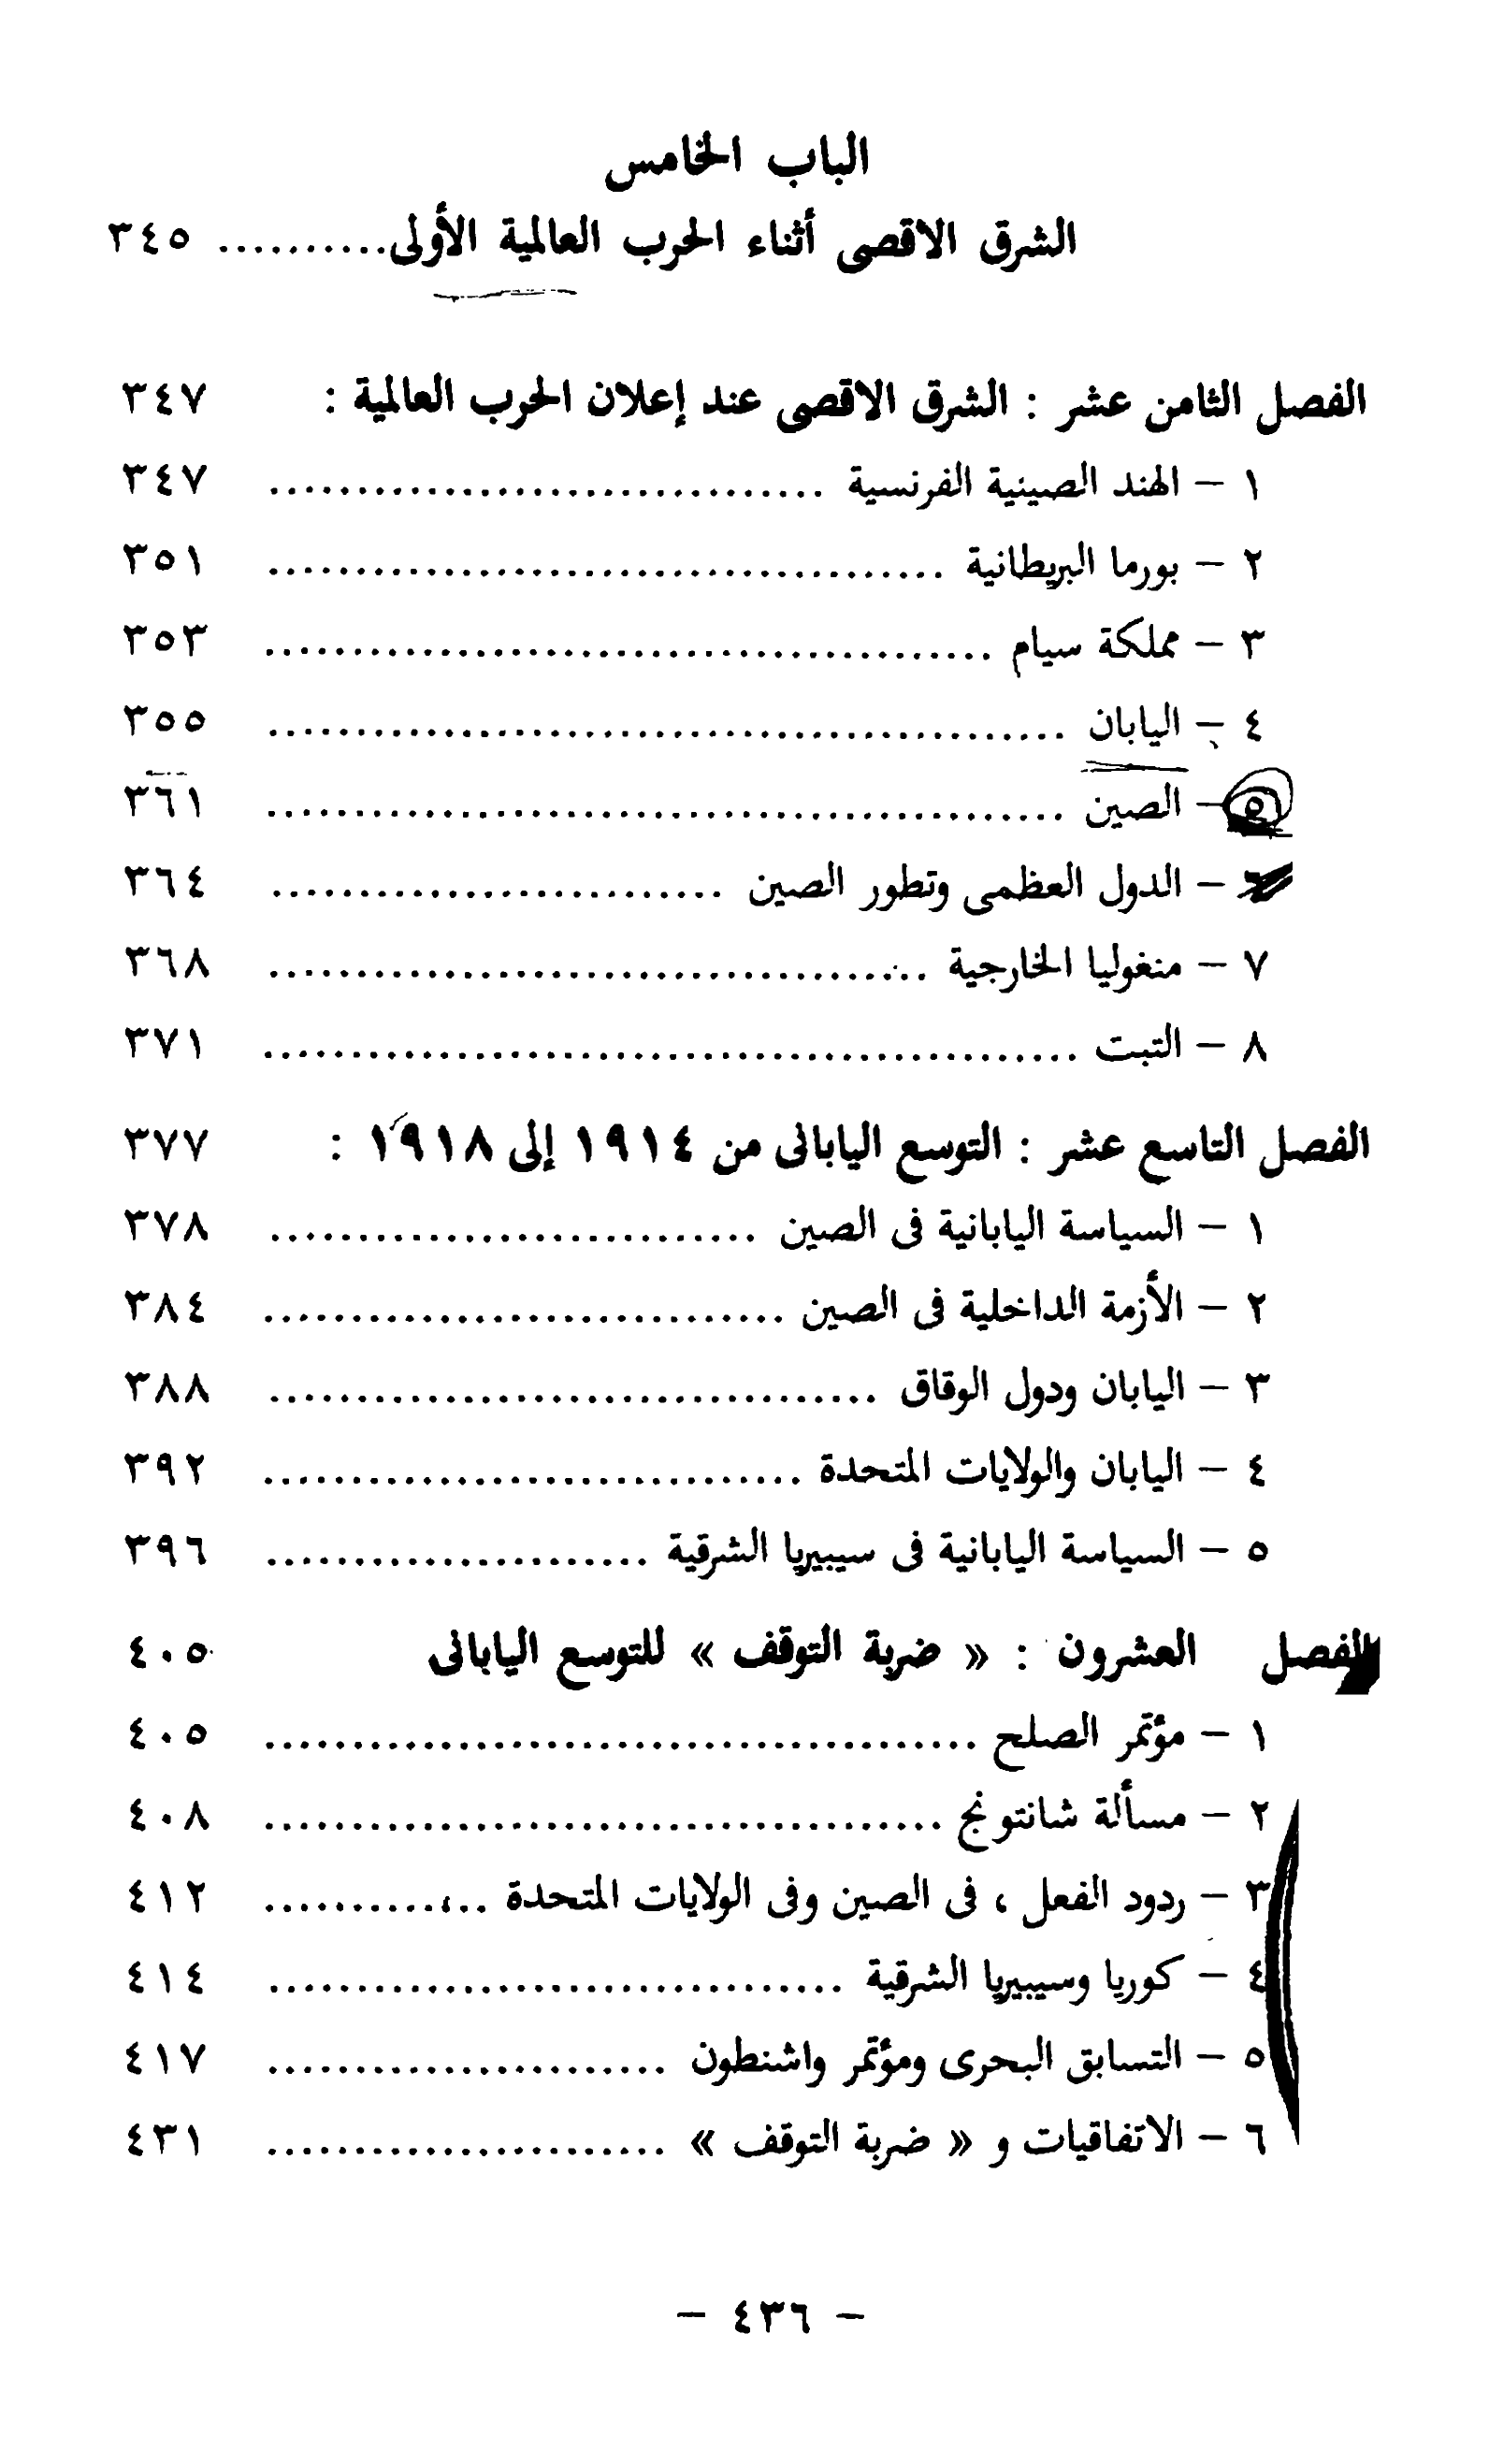 الباب الخامس
الشرق الاقصى أثناء الحرب العالمية الأولى .......... ٣٤٥
الفصل الثامن عشر : الشرق الاقصى عند إعلان الحرب العالمية : ٣٤٧
١ – الهند الصينية الفرنسية ................................ ٣٤٧
٢ – بورما البريطانية ....................................... ٣٥١
٣ – مملكة سيام .......................................... ٣٥٣
٤ – اليابان .............................................. ٣٥٥
٥ – الصين .............................................. ٣٦١
٦ – الدول العظمى وتطور الصين .......................... ٣٦٤
٧ – منغوليا الخارجية ...................................... ٣٦٨
٨ – التبت ............................................... ٣٧١
الفصل التاسع عشر : التوسع اليابانى من ١٩١٤ إلى ١٩١٨ : ٣٧٧
١ – السياسة اليابانية فى الصين ............................ ٣٧٨
٢ – الأزمة الداخلية فى الصين .............................. ٣٨٤
٣ – اليابان ودول الوقاق ................................... ٣٨٨
٤ – اليابان والولايات المتحدة ............................... ٣٩٢
٥ – السياسة اليابانية فى سيبيريا الشرقية ...................... ٣٩٦
الفصل العشرون : « ضربة التوقف » للتوسع اليابانى ٤٠٥
١ – مؤتمر الصلح ......................................... ٤٠٥
٢ – مسألة شانتونج ....................................... ٤٠٨
٣ – ردود الفعل ، فى الصين وفى الولايات المتحدة ............. ٤١٢
٤ – كوريا وسيبيريا الشرقية ................................. ٤١٤
٥ – التسابق البحرى ومؤتمر واشنطون ....................... ٤١٧
٦ – الاتفاقيات و « ضربة التوقف » ....................... ٤٣١
– ٤٣٦ –